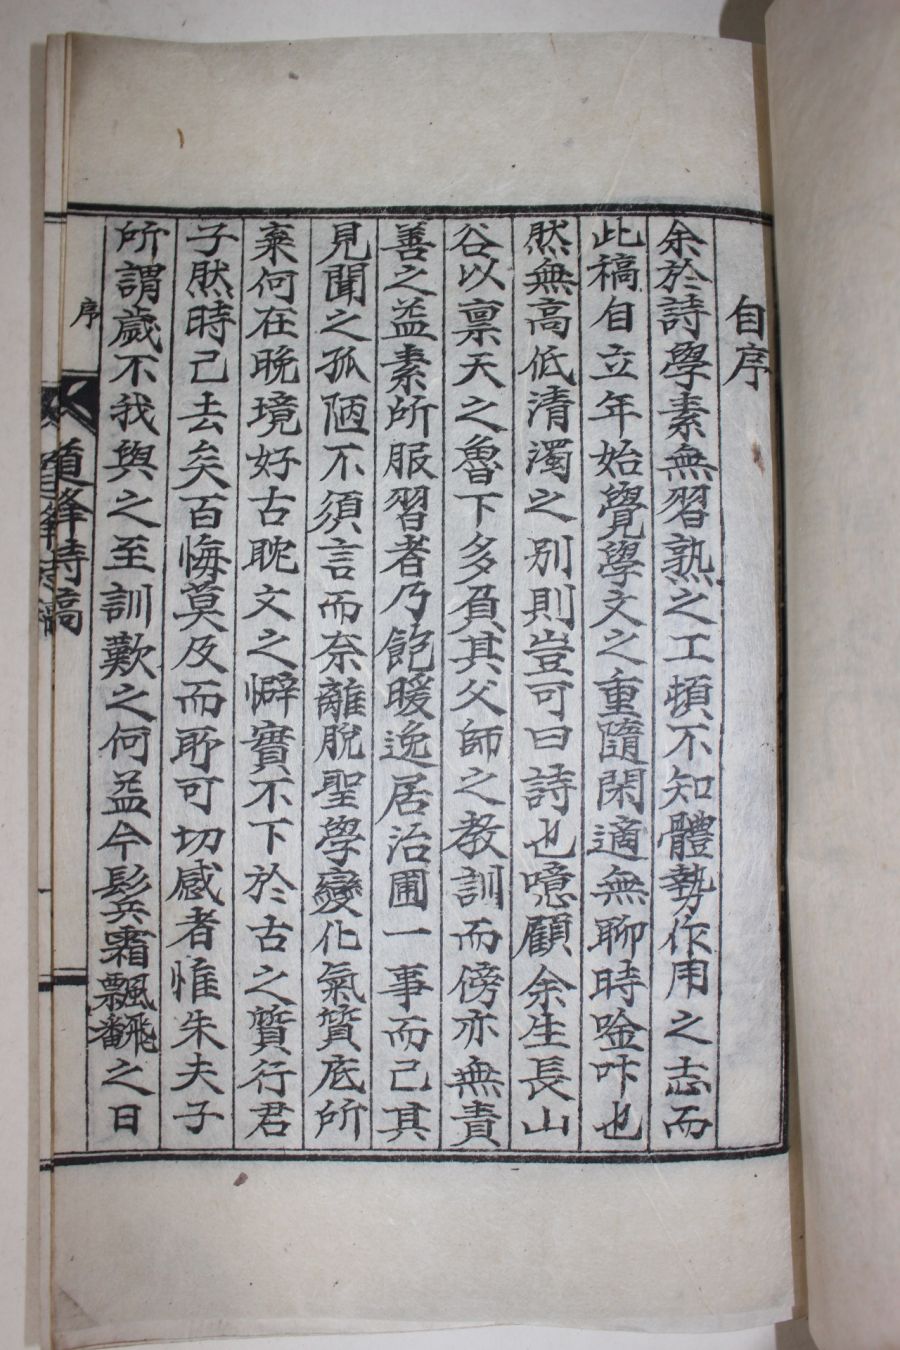 自序
余於詩學素無習熟之工頓不知體勢作用之志而
此稿自立年始覺學文之重隨閑適無聊時唫咔也
然無高低清濁之別則豈可曰詩也噫顧余生長山
谷以禀天之魯下多負其父師之教訓而傍亦無責
善之益素所服習者乃飽暖逸居治圃一事而己其
見聞之孤陋不須言而奈離脫聖學變化氣質底所
棄何在晚境好古眈文之癖實不下於古之質行君
子然時己去矣百悔莫及而耶可切感者惟朱夫子
所謂歲不我與之至訓歎之何益今髟兵霜飄飜之日
序
道峰詩稿